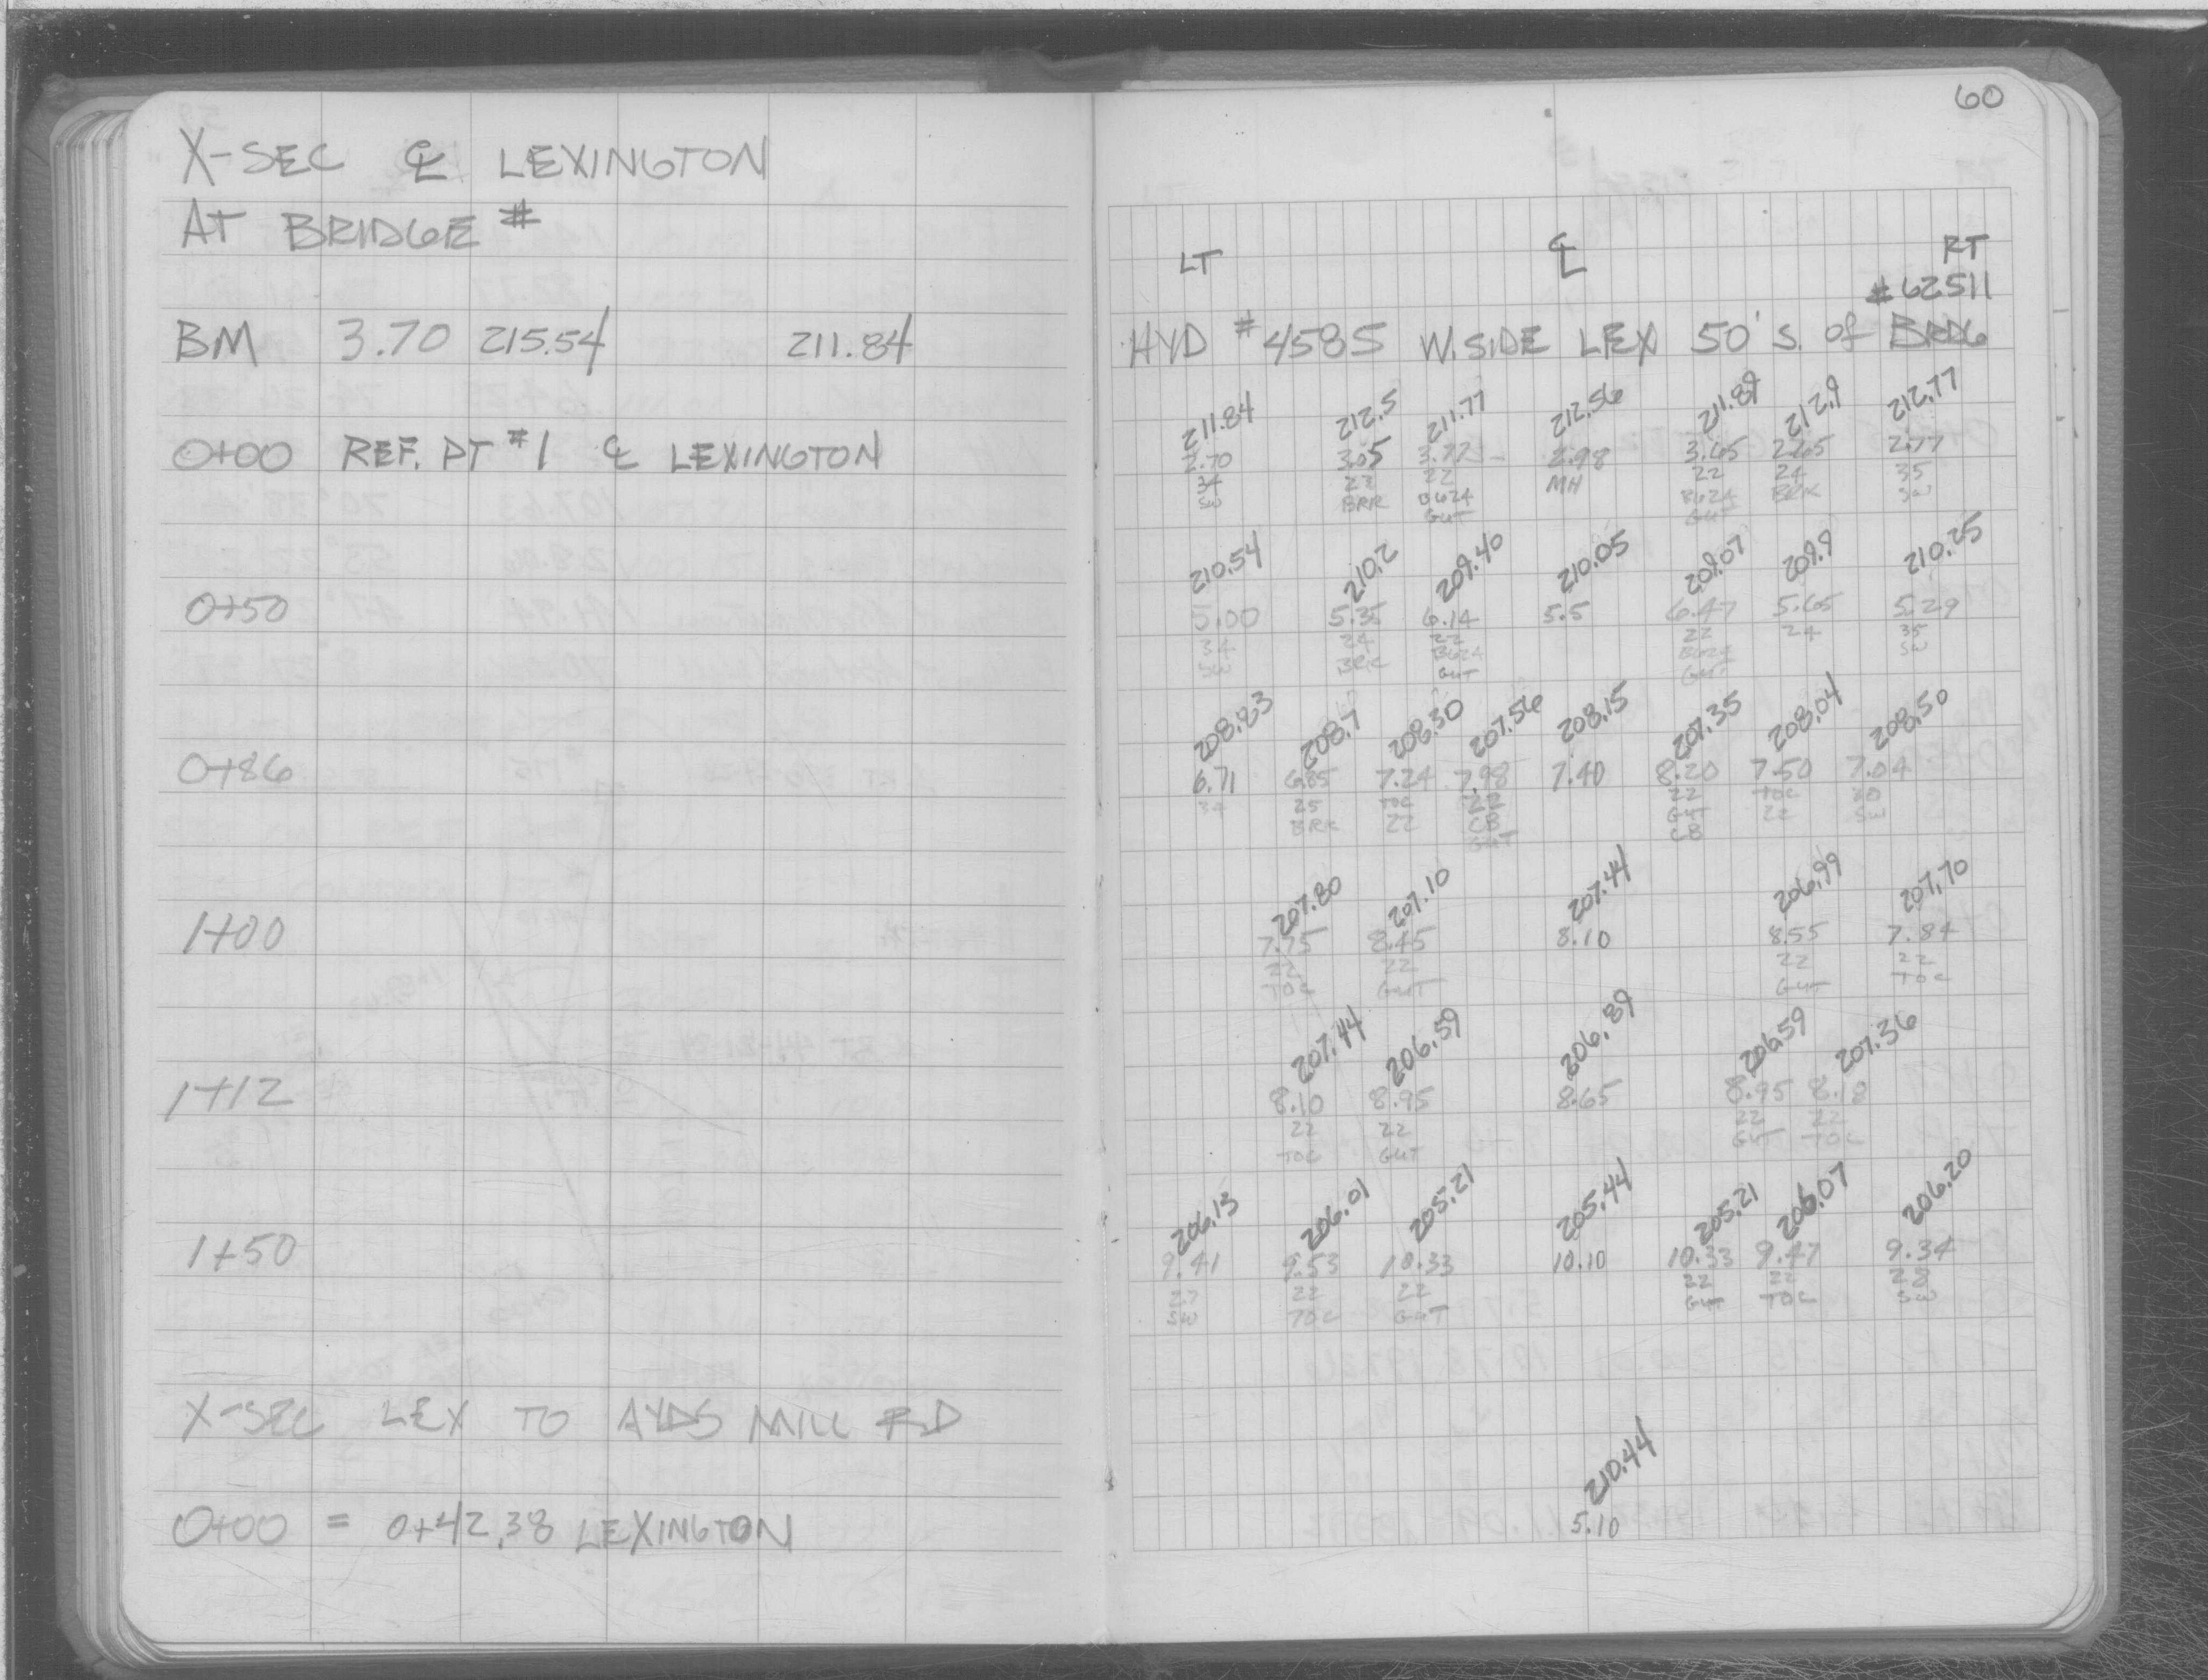 X-SEC ℄ LEXINGTON
AT BRIDGE #
BM 3.70 215.54 211.84
0+00 REF. PT #1 ℄ LEXINGTON
0+50
0+86
1+00
1+12
1+50
X-SEC LEX TO AYDS MILL RD
0+00 = 0+42.38 LEXINGTON
60
LT ℄ RT
#62511
HYD #4585 W.SIDE LEX 50' S. of BRDG
211.84 212.5 211.77 212.56 211.89 212.9 212.77
2.70 3.05 3.77 2.98 3.65 2.65 2.77
34 22 22 MH 22 24 35
SW BRK B624 B624 BRK SW
GUT GUT
210.54 210.2 209.40 210.05 209.07 209.9 210.25
5.00 5.35 6.14 5.5 6.47 5.65 5.29
34 24 22 22 24 35
SW BRK B624 B624 SW
GUT GUT
208.83 208.7 208.30 207.56 208.15 207.35 208.04 208.50
6.71 6.85 7.24 7.98 7.40 8.20 7.50 7.04
34 25 TOC 22 22 TOC 30
BRK 22 CB GUT 22 SW
GUT CB
207.80 207.10 207.44 206.99 207.70
7.75 8.45 8.10 8.55 7.84
22 22 22 22
TOC GUT GUT TOC
207.44 206.59 206.89 206.59 207.36
8.10 8.95 8.65 8.95 8.18
22 22 22 22
TOC GUT GUT TOC
206.13 206.01 205.21 205.44 205.21 206.07 206.20
9.41 9.53 10.33 10.10 10.33 9.47 9.34
27 22 22 22 22 28
SW TOC GUT GUT TOC SW
210.44
5.10